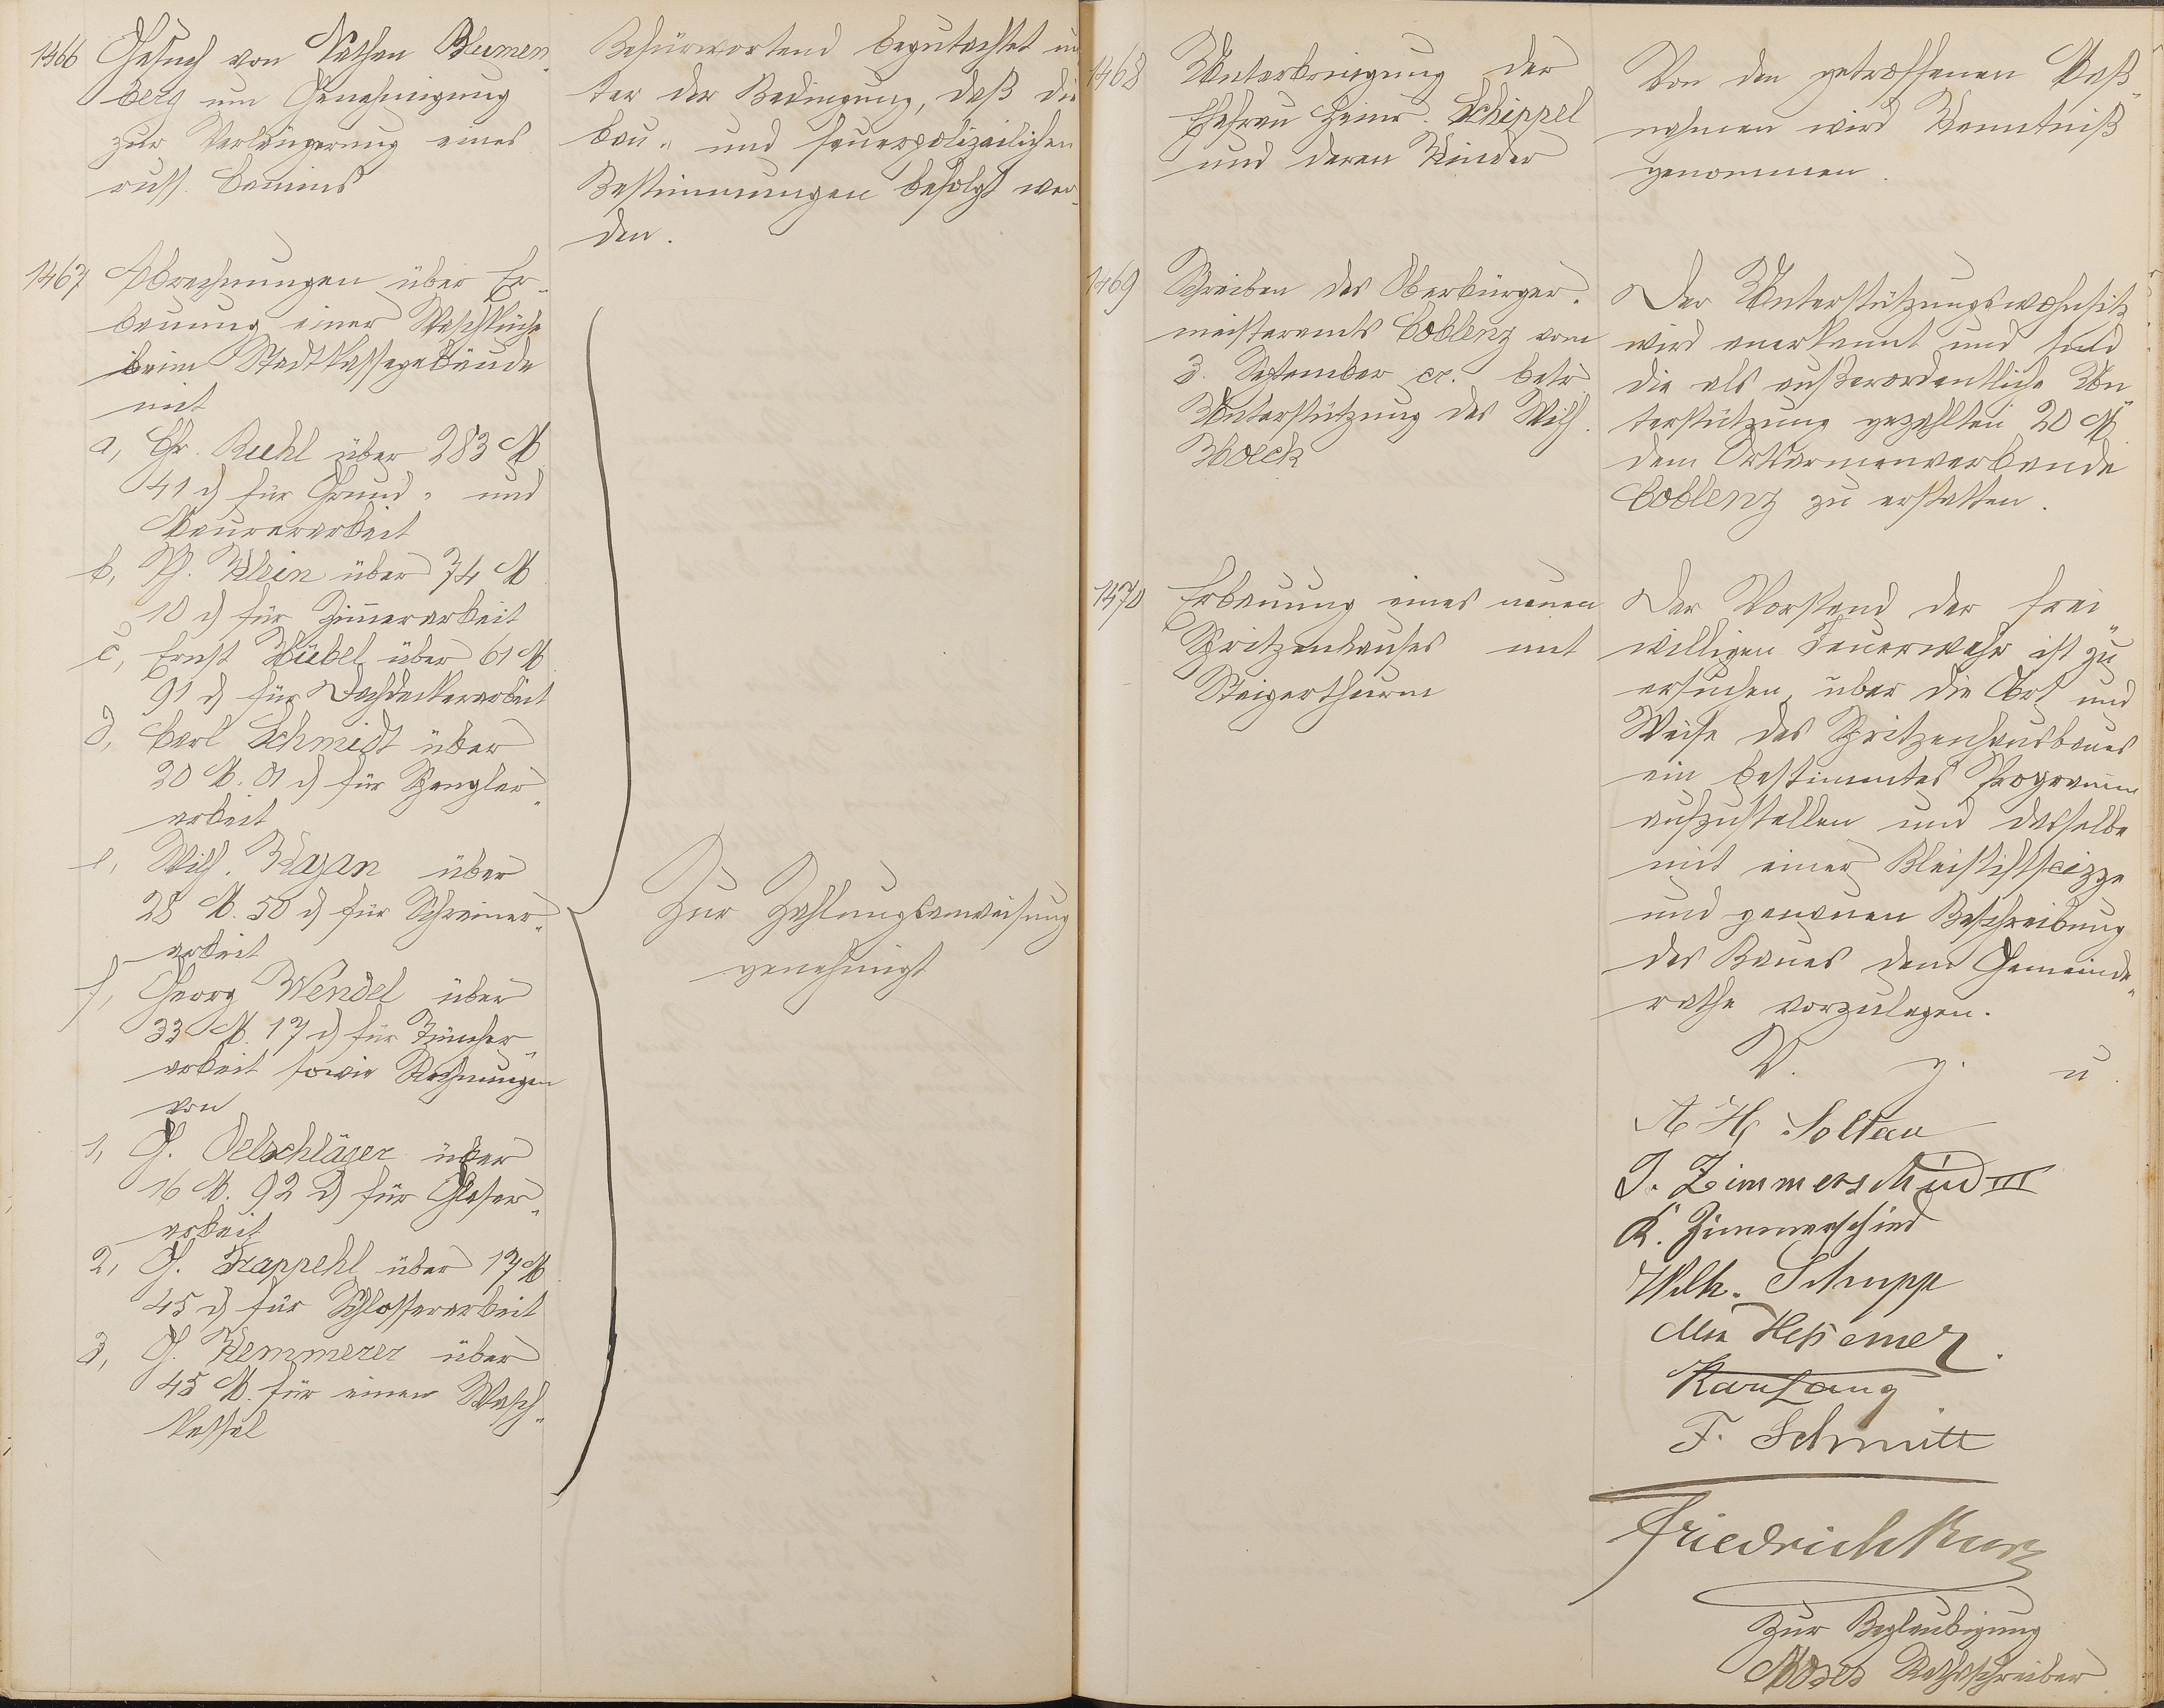 1466
Gesuch von Nathan Blumen-
berg um Genehmigung
zur Verlängerung eines
russ. Kamins
Befürwortend begutachtet un
ter der Bedingung, daß die
bau- und feuerpolizeilichen
Bestimmungen befolgt wer-
den.
1467
Abrechnungen über Er-
bauung einer Waschküche
beim Stadtkassegebäude
mit
a, Chr. Ruhl über 283 M
41 ₰ für Grund- und
Maurerarbeit
b, Ph. Klein über 74 M
10 ₰ für Zimerarbeit
c, Ernst Hübel über 61 M
91 ₰ für Dachdeckerarbeit
d, Carl Schmidt über
20 M. 01 ₰ für Spengler-
arbeit
e, Wilh. Kazan über
28 M. 50 ₰ für Schreiner-
arbeit
f, Georg Wendel über
33 M. 17 ₰ für Tüncher-
arbeit sowie Rechnungen
von
1, G. Oelschläger über
16 M. 92 ₰ für Glaser-
arbeit
2, G. Trappehl über 17 M
45 ₰ für Schlosserarbeit
3, G. Kemmerer über
45 M. für einen Wasch-
kessel
Zur Zahlungsanweisung
genehmigt
1468
Unterbringung der
Ehefrau Heinr. Schippel
und deren Kinder
Von den getroffenen Maß-
nahmen wird Kenntniß
genommen.
1469
Schreiben des Oberbürger-
meisteramts Coblenz vom
3. September cr. betr
Unterstützung des Wilh.
Kock
Der Unterstützungswohnsitz
wird anerkannt und sind
die als außerordentliche Un-
terstützung gezahlten 20 M
dem Ortsarmenverbande
Coblenz zu erstatten.
1470
Erbauung eines neuen
Spritzenhauses mit
Steigerthurm
Der Vorstand der frei-
willigen Feuerwehr ist zu
ersuchen, über die Art und
Weise des Spritzenhausbaues
ein bestimmtes Programm
aufzustellen und dasselbe
mit einer Bleistiftscizze
und genauen Beschreibung
des Baues dem Gemeinde-
rathe vorzulegen.
V. g. u.
A H Soltau
J. Zimmerschied III
K. Zimmerschied
Wilh. Schupp
Heßemer.
Karl Lang
F. Schmitt
Friedrich Kurz
Zur Beglaubigung
Moses Rathsschreiber